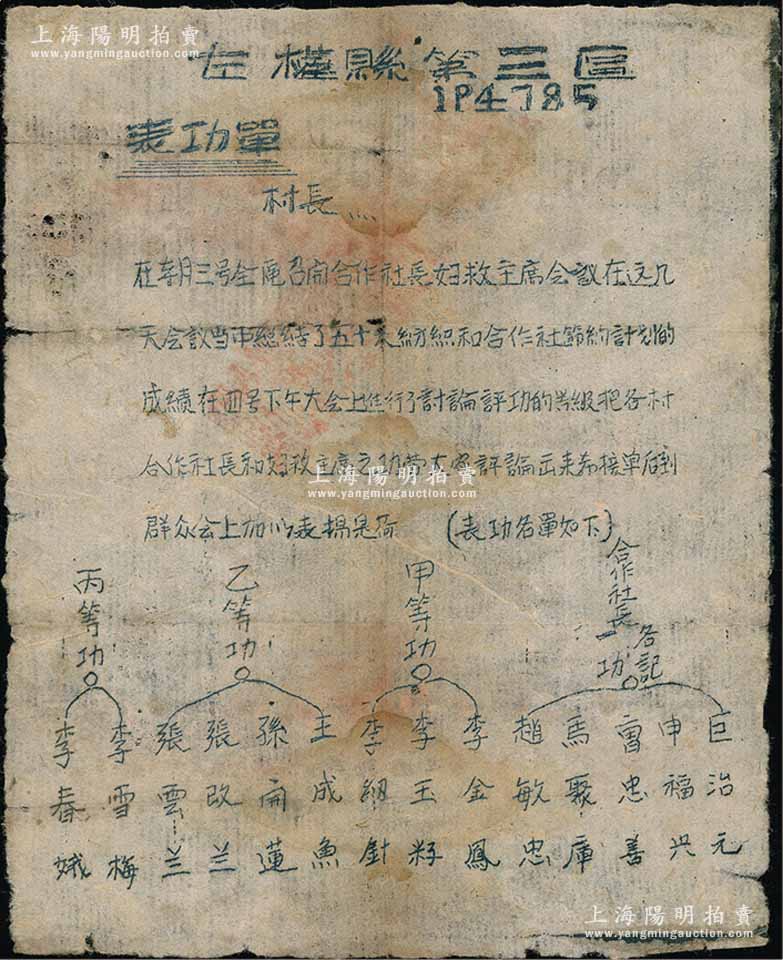 上海陽明拍賣
www.yangmingauction.com
左權縣第三區
1P4785
表功單
村長....
在本月三号全區召開合作社長妇救主席会議在这几
天会議当中総結了五十天紡織和合作社節約計划的
成績在四号下午大会上進行了討論評功的等級把各村
合作社長和妇救主席之功勞大家評論出来希接单后到
群众会上加以表揚是荷 (表功名單如下)
合作社長各記一功
巨治元
申福兴
雷忠善
馬聚庫
趙敏忠
甲等功
李金鳳
李玉籽
李紉針
乙等功
王成魚
孫开蓮
張改兰
張雲兰
丙等功
李雪梅
李春娥
上海陽明拍賣
www.yangmingauction.com
上海陽明拍賣
www.yangmingauction.com